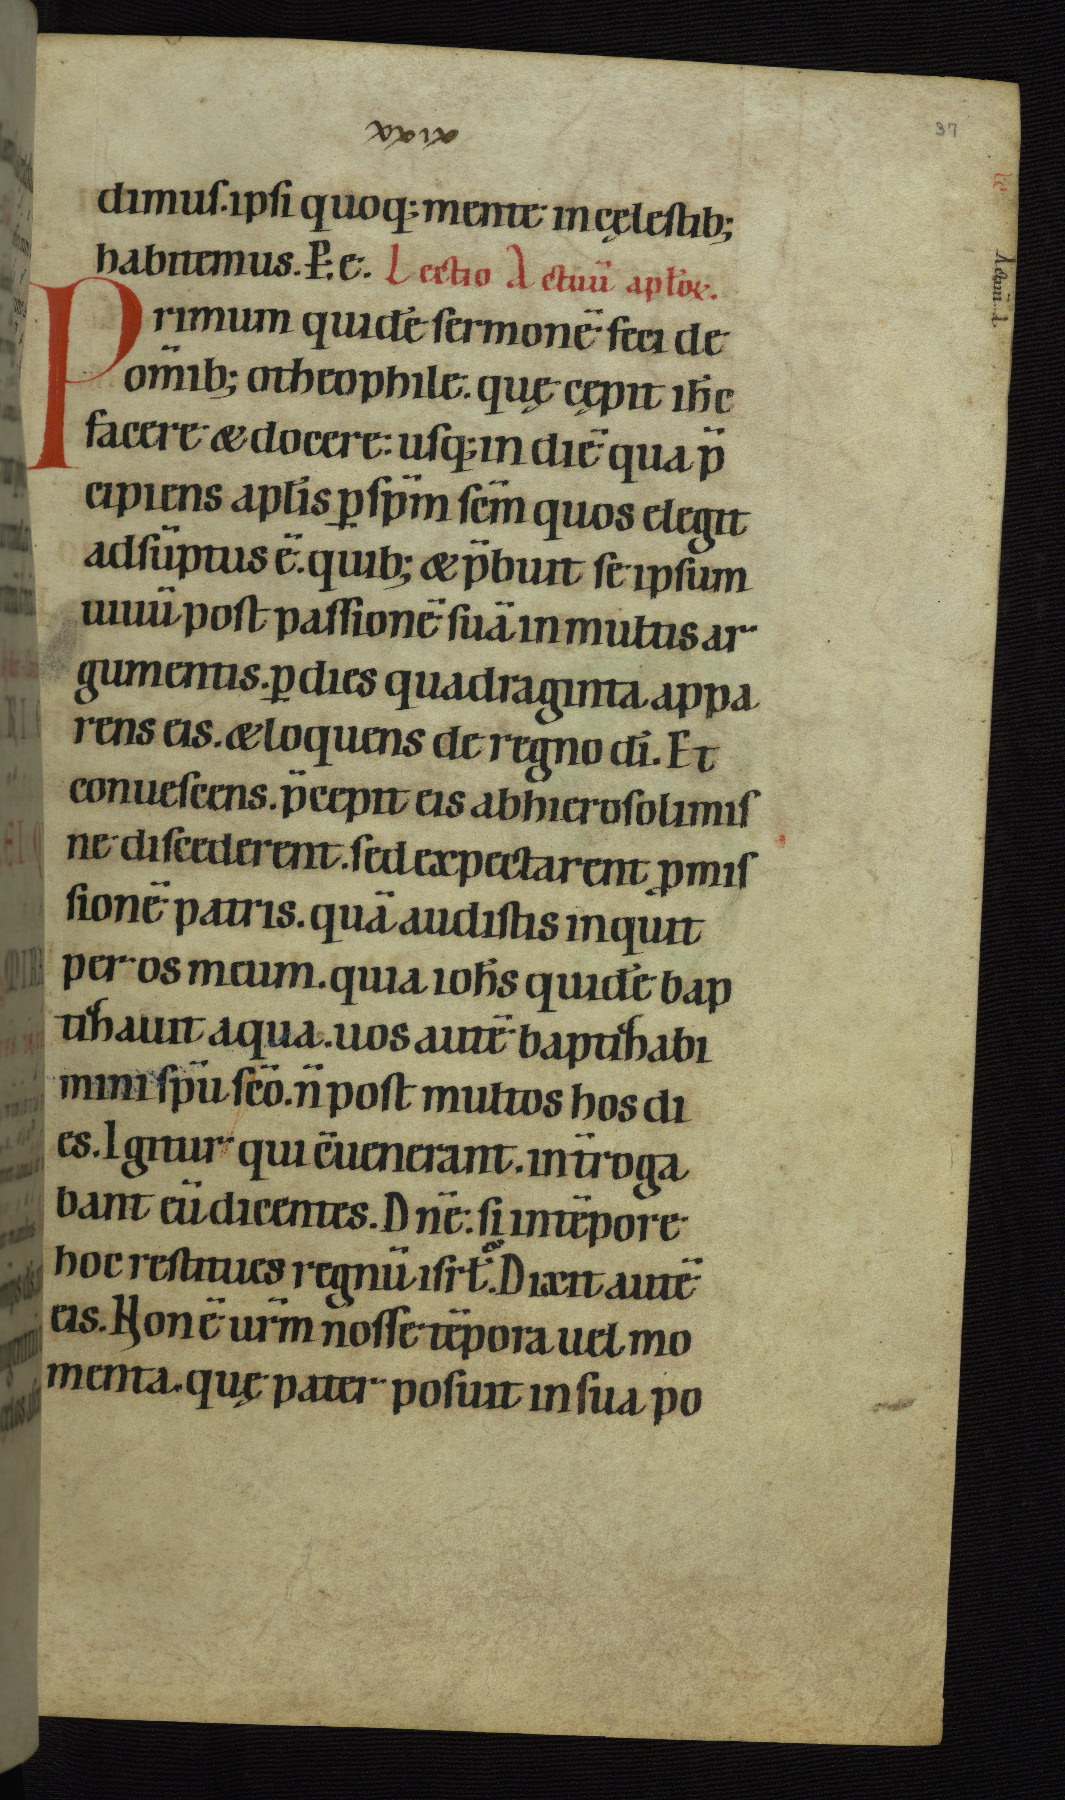 37
dimus. ipsi quoq; mente in cęlestib;
habitemus. P. e. Lectio Actuū aplōꝝ.
Primum quidē sermonē feci de
om̄ib; o theophile. quę cępit ih̄c
facere & docere: usq; in diē qua p̄
cipiens apl̄is ꝑ sp̄m sc̄m quos elegit
adsūptus ē. quib; & p̄buit se ipsum
uiuū post passionē suā in multis ar
gumentis. ꝑ dies quadraginta appa
rens eis. & loquens de regno dī. Et
conuescens. p̄cepit eis ab hierosolimis
ne discederent. sed expectarent ꝓmis
sionē patris. quā audistis inquit
per os meum. quia ioh̄s quidē bap
tizauit aqua. uos autē baptizabi
mini sp̄u sc̄o. n̄ post multos hos di
es. Igitur qui c̄uenerant. int̄roga
bant eū dicentes. Dn̄e. si in tēpore
hoc restitues regnū isrł. Dixit autē
eis. Non ē ur̄m nosse tēpora uel mo
menta. quę pater posuit in sua po
Actuū. 1